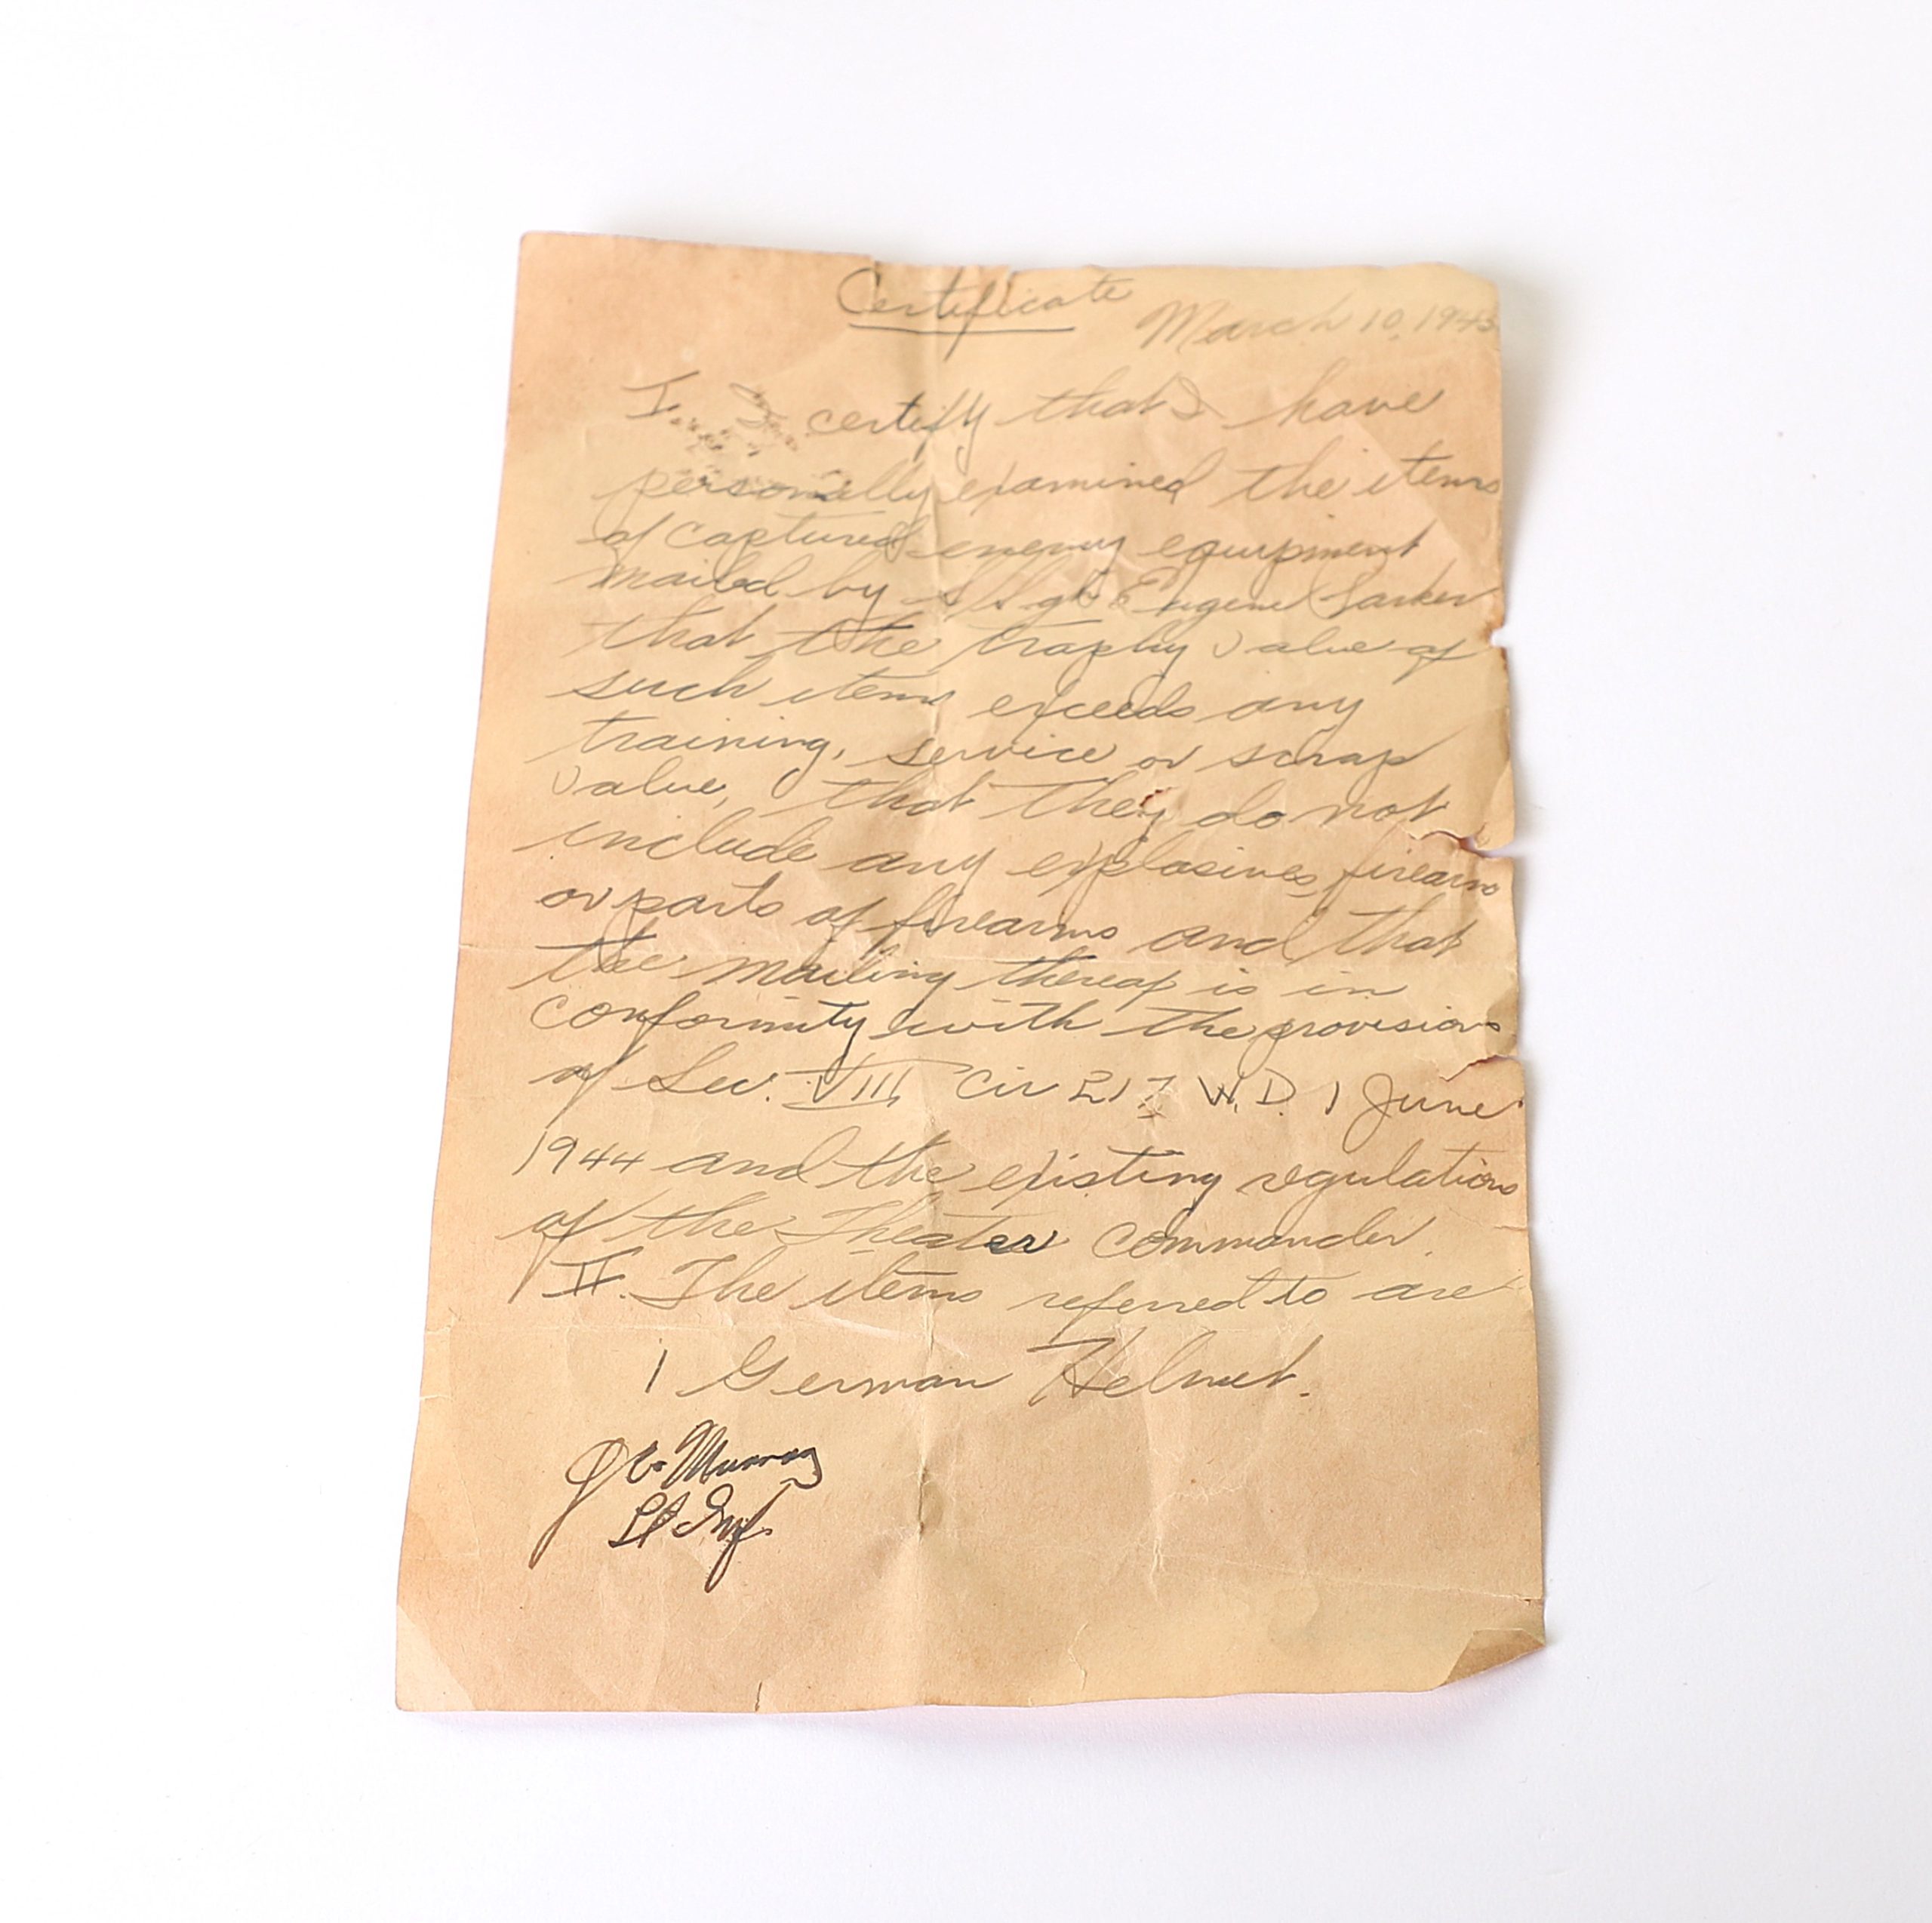 Certificate
March 10, 1945
I. certify that I have
personally examined the items
of captured enemy equipment
mailed by S/Sgt Eugene
that the trophy value of
such items exceeds any
training, service or scrap
value, that they do not
include any explosives, firearms
or parts of firearms and that
the mailing thereof is in
conformity with the provisions
of Sec. VIII Cir 217 W.D. 1 June
1944 and the existing regulations
of the Theater Commander.
II. The items referred to are
1 German Helmet.
Murray
Lt Inf.